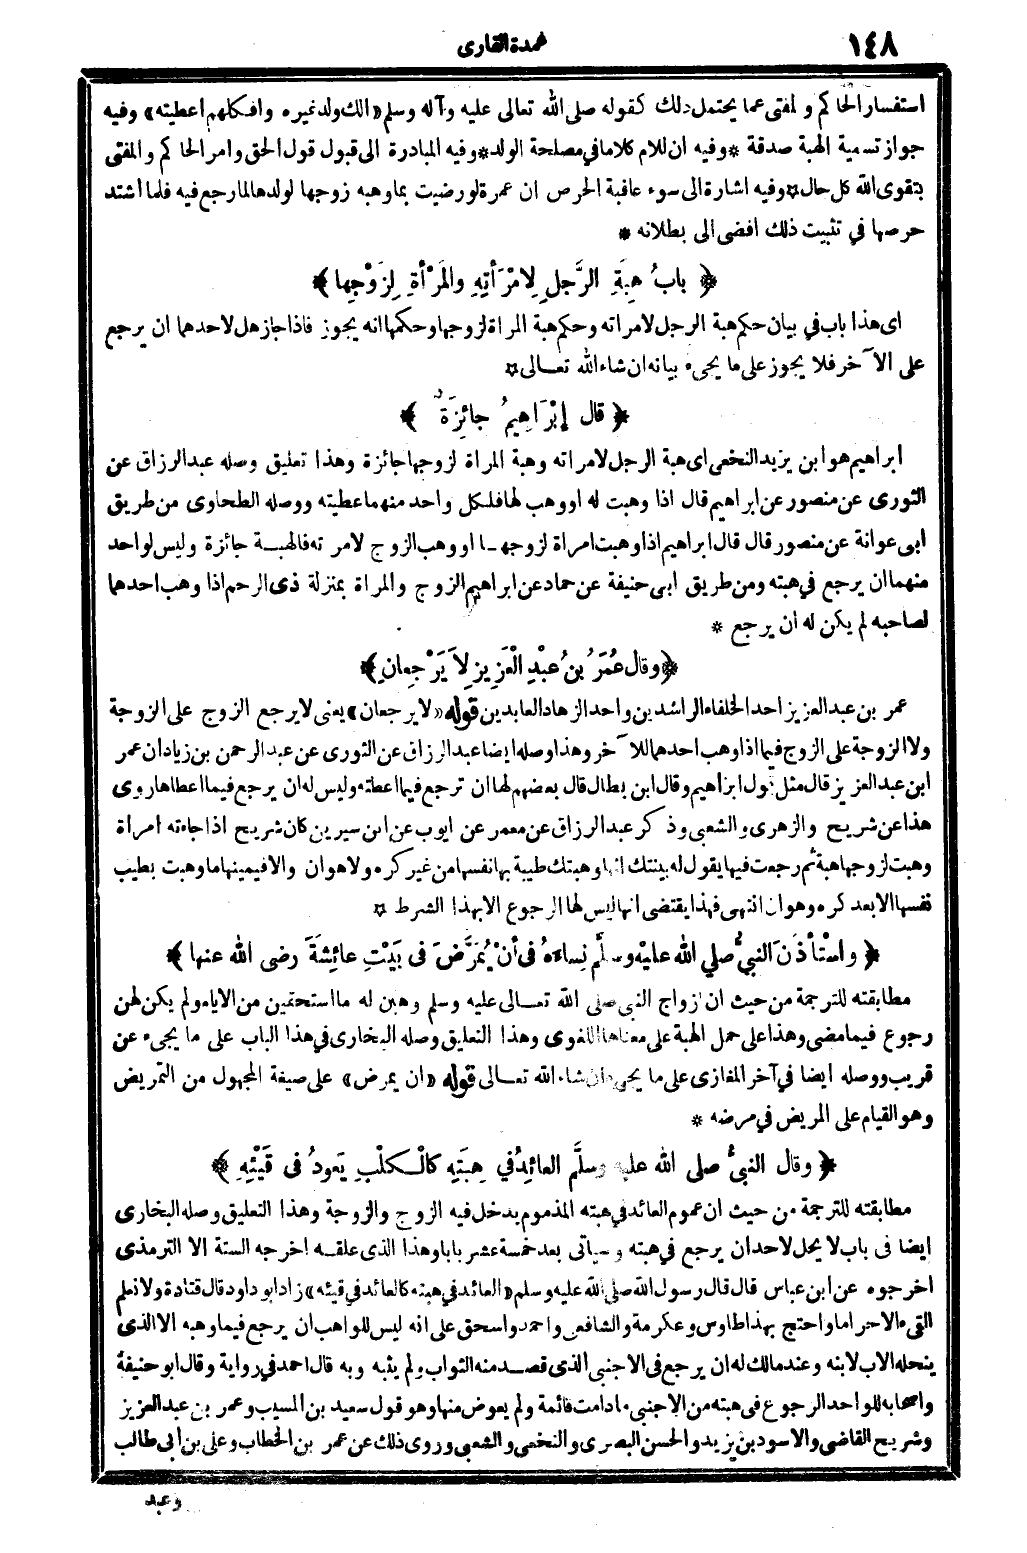 ١٤٨
عمدة القارى
استفسار الحاكم والمفتى عما يحتمل ذلك كقوله صلى الله تعالى عليه وآله وسلم «الك ولد غيره وافكلهم اعطيته» وفيه
جواز تسمية الهبة صدقة * وفيه ان للام كلاما في مصلحة الولد * وفيه المبادرة الى قبول قول الحق وامر الحاكم والمفتى
بتقوى الله كل حال * وفيه اشارة الى سوء عاقبة الحرص ان عمرة لو رضيت بما وهبه زوجها لولدها لما رجع فيه فلما اشتد
حرصها في تثبيت ذلك افضى الى بطلانه *
﴿ بابُ هِبَةِ الرَّجلِ لِامْرَأتِهِ والمَرْأةِ لِزَوْجِها ﴾
اى هذا باب في بيان حكم هبة الرجل لامراته وحكم هبة المراة لزوجها وحكمها انه يجوز فاذا جاز هل لاحدهما ان يرجع
على الآخر فلا يجوز على ما يجىء بيانه ان شاء الله تعالى *
﴿ قال إبْرَاهِيمُ جائِزَةٌ ﴾
ابراهيم هو ابن يزيد النخعى اى هبة الرجل لامراته وهبة المراة لزوجها جائزة وهذا تعليق وصله عبد الرزاق عن
الثورى عن منصور عن ابراهيم قال اذا وهبت له او وهب لها فلكل واحد منهما عطيته ووصله الطحاوى من طريق
ابى عوانة عن منصور قال قال ابراهيم اذا وهبت امراة لزوجها او وهب الزوج لامرته فالهبة جائزة وليس لواحد
منهما ان يرجع في هبته ومن طريق ابى حنيفة عن حماد عن ابراهيم الزوج والمراة بمنزلة ذى الرحم اذا وهب احدهما
لصاحبه لم يكن له ان يرجع *
﴿ وقال عُمَرُ بنُ عبْدِ الْعَزِيزِ لاَ يَرْجِعانِ ﴾
عمر بن عبد العزيز احد الخلفاء الراشدين واحد الزهاد العابدين قوله «لا يرجعان» يعنى لا يرجع الزوج على الزوجة
ولا الزوجة على الزوج فيما اذا وهب احدهما للآخر وهذا وصله ايضا عبد الرزاق عن الثورى عن عبد الرحمن بن زياد ان عمر
ابن عبد العزيز قال مثل قول ابراهيم وقال ابن بطال قال بعضهم لها ان ترجع فيما اعطته وليس له ان يرجع فيما اعطاها روى
هذا عن شريح والزهرى والشعبى وذكر عبد الرزاق عن معمر عن ايوب عن ابن سيرين كان شريح اذا جاءته امراة
وهبت لزوجها هبة ثم رجعت فيها يقول له بينتك انها وهبتك طيبة بها نفسها من غير كره ولا هوان والا فيمينها ما وهبت بطيب
نفسها الا بعد كره وهوان انتهى فهذا يقتضى انها ليس لها الرجوع الا بهذا الشرط *
﴿ واسْتَأْذَنَ النبيُّ صلي الله عليه وسلَّم نِساءَهُ في أنْ يُمَرَّضَ في بَيْتِ عائِشَةَ رضي الله عنها ﴾
مطابقته للترجمة من حيث ان ازواج النبى صلى الله تعالى عليه وسلم وهبن له ما استحقين من الايام ولم يكن لهن
رجوع فيما مضى وهذا على حمل الهبة على معناها اللغوى وهذا التعليق وصله البخارى في هذا الباب على ما يجىء عن
قريب ووصله ايضا في آخر المغازى على ما يجىء ان شاء الله تعالى قوله «ان يمرض» على صيغة المجهول من التمريض
وهو القيام على المريض في مرضه *
﴿ وقال النبيُّ صلى الله عليه وسلَّم العائِدُ في هِبَتِهِ كالْكلْبِ يَعودُ في قَيْئِهِ ﴾
مطابقته للترجمة من حيث ان عموم العائد في هبته المذموم يدخل فيه الزوج والزوجة وهذا التعليق وصله البخارى
ايضا فى باب لا يحل لاحد ان يرجع في هبته وسياتى بعد خمسة عشر بابا وهذا الذى علقه اخرجه الستة الا الترمذى
اخرجوه عن ابن عباس قال قال رسول الله صلى الله عليه وسلم «العائد في هبته كالعائد في قيئه» زاد ابو داود قال قتادة ولا نعلم
القىء الا حراما واحتج بهذا طاوس وعكرمة والشافعى واحمد واسحق على انه ليس للواهب ان يرجع فيما وهبه الا الذى
ينحله الاب لابنه وعند مالك له ان يرجع فى الاجنبى الذى قصد منه الثواب ولم يثبه وبه قال احمد في رواية وقال ابو حنيفة
واصحابه للواحد الرجوع فى هبته من الاجنبى ما دامت قائمة ولم يعوض منها وهو قول سعيد بن المسيب وعمر بن عبد العزيز
وشريح القاضى والاسود بن يزيد والحسن البصرى والنخعى والشعبى وروى ذلك عن عمر بن الخطاب وعلى بن ابى طالب
وعبد